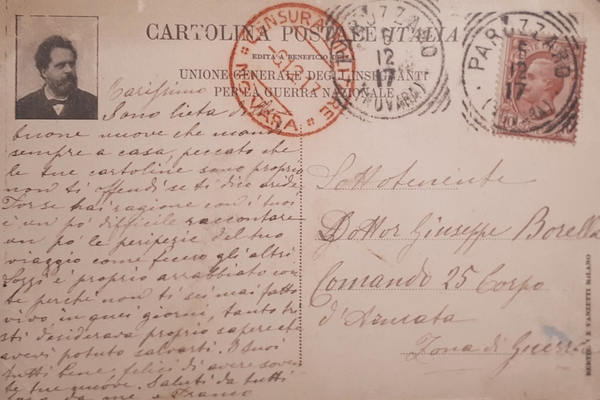 CARTOLINA POSTALE ITALIANA
EDITA A BENEFICIO DELL'
UNIONE GENERALE DEGL'INSEGNANTI
PER LA GUERRA NAZIONALE
CENSURA MILITARE
NOVARA
PARUZZANO
6
12
17
(NOVARA)
PARUZZARO
6
12
17
(NOVARA)
Carissimo
Sono lieta delle
buone nuove che mandi
sempre a casa, peccato che
le tue cartoline sono proprio
non ti offendi se ti dico aride,
Forse hai ragione con i tuoi
è un po' difficile raccontare
un po' le peripezie del tuo
viaggio come fecero gli altri
è proprio arrabbiato con
te perché non ti sei mai fatto
vivo in quei giorni, tanto
desiderava proprio sapere che
avevi potuto salvarti. I tuoi
tutti bene, felici di avere sovente
le tue nuove. Saluti da tutti
da me e Franco
Sottotenente
Dottor Giuseppe Borella
Comando 25 Corpo
d'Armata
Zona di Guerra
BERTOLI E VANZETTI MILANO